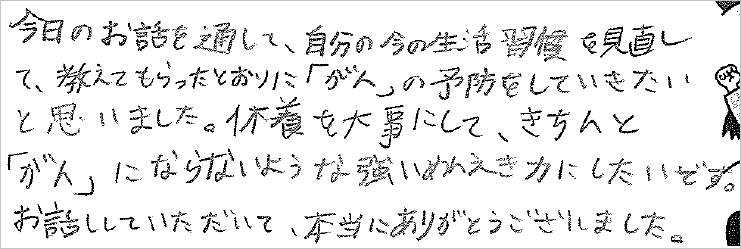 今日のお話を通して、自分の今の生活習慣を見直し
て、教えてもらったとおりに「がん」の予防をしていきたい
と思いました。休養を大事にして、きちんと
「がん」にならないような強いめんえき力にしたいです。
お話ししていただいて、本当にありがとうございました。